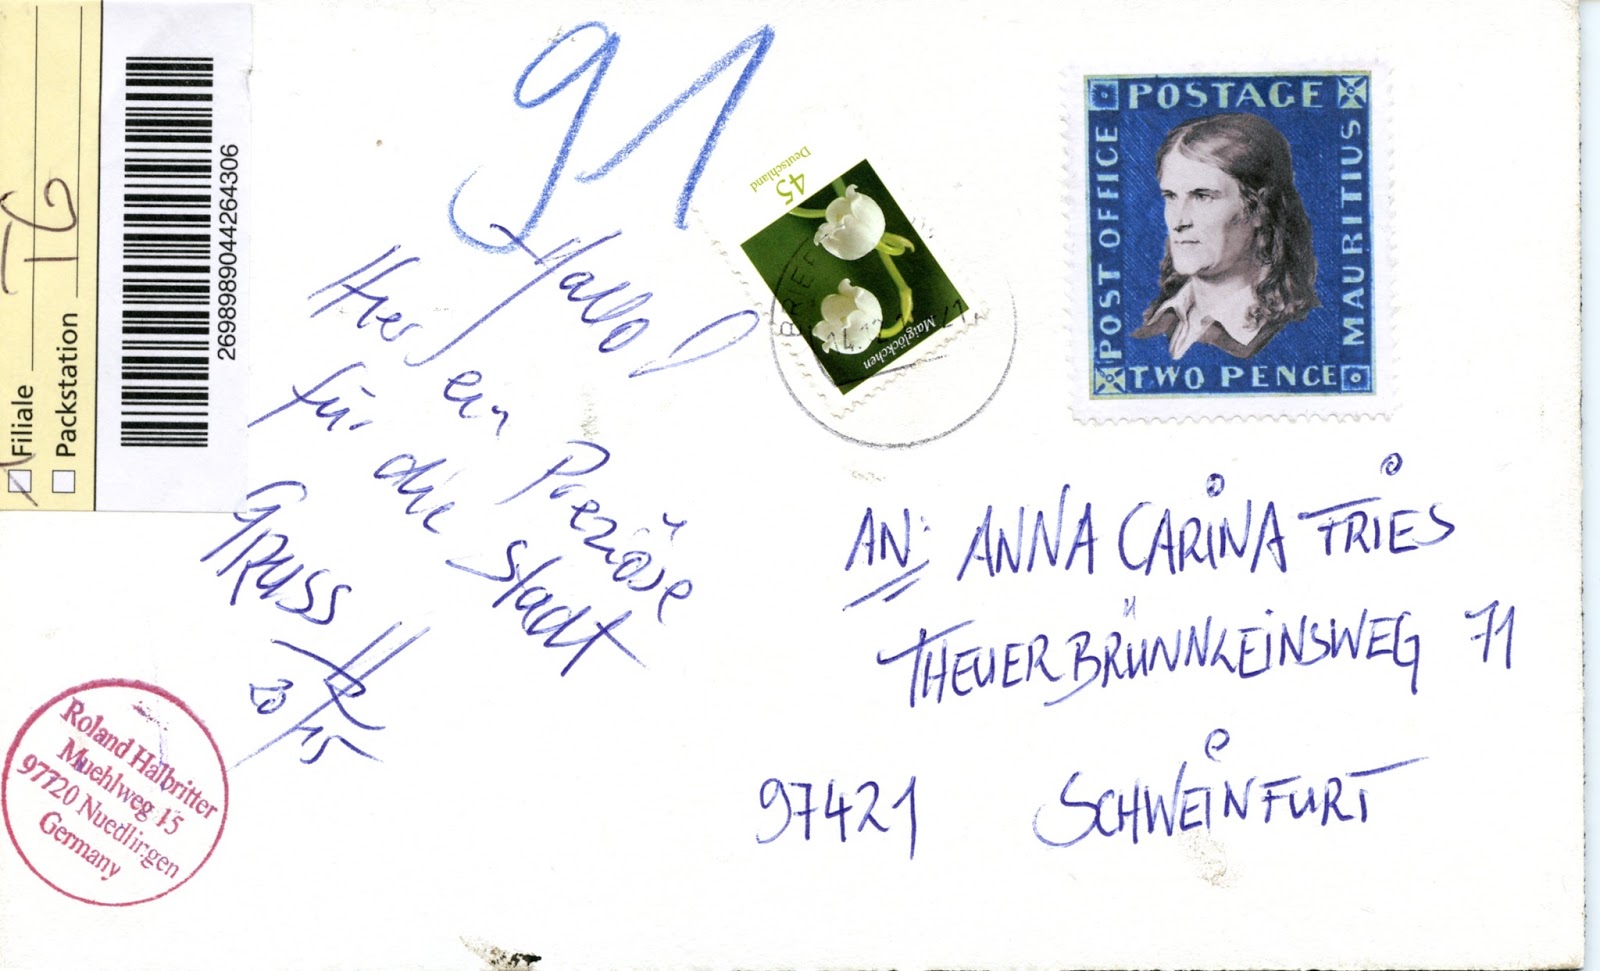 Filiale
TG
Packstation
2698989044264306
91
Deutschland
45
Maiglöckchen
BRIEF
POSTAGE
POST OFFICE
MAURITIUS
TWO PENCE
Hallo!
Hier ein Preziöse
für die Stadt
GRUSS
20/15
AN: ANNA CARINA FRIES
THEUERBRÜNNLEINSWEG 71
97421 SCHWEINFURT
Roland Halbritter
Muehlweg 15
97720 Nuedlingen
Germany